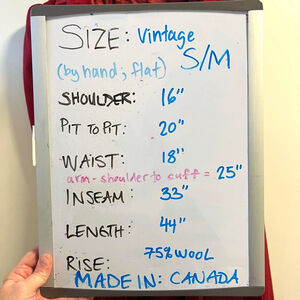 SIZE: Vintage
S/M
(by hand; flat)
SHOULDER: 16"
PIT TO PIT: 20"
WAIST: 18"
arm-shoulder to cuff = 25"
INSEAM: 33"
LENGTH: 44"
RISE: 75% WOOL
MADE IN: CANADA